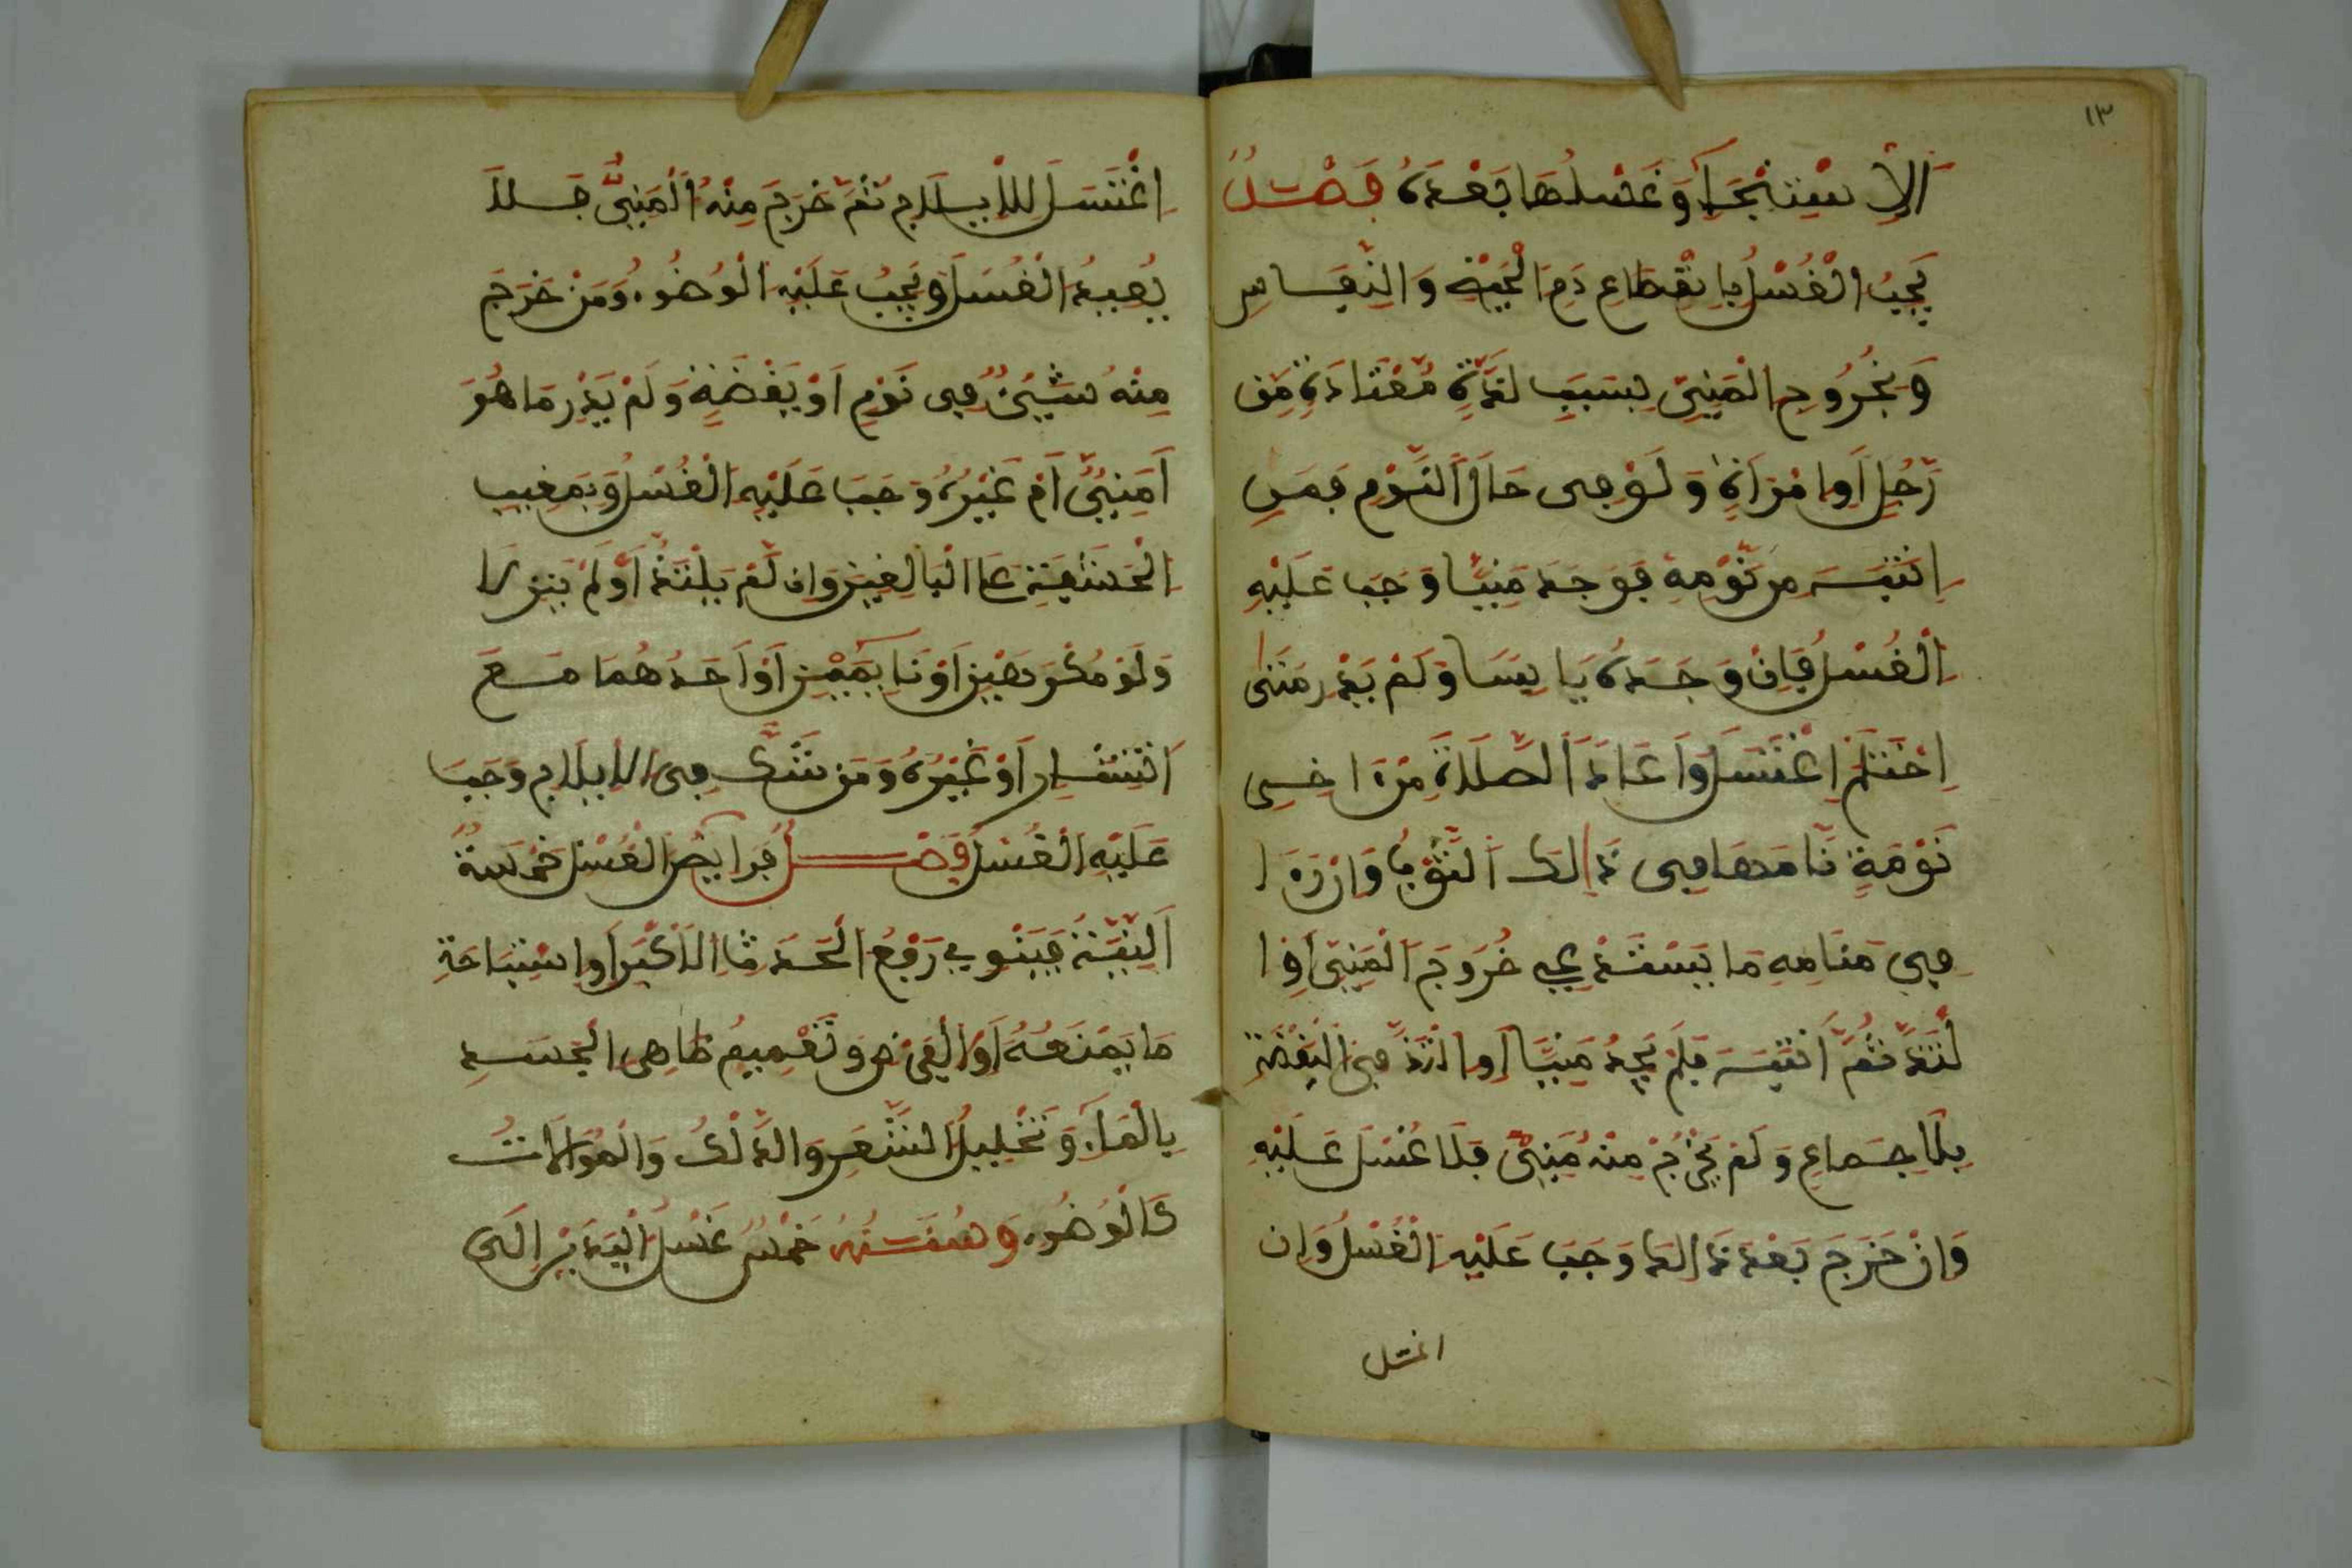 ١٣
اَلِاسْتِنْجَآءِ وَغَسْلُهَا بَعْدَهُ فَصْلٌ
يَجِبُ الْغُسْلُ بِانْقِطَاعِ دَمِ الْحَيْضِ وَالنِّفَاسِ
وَبِخُرُوجِ الْمَنِيِّ بِسَبَبِ لَذَّةٍ مُعْتَادَةٍ مِن
رَّجُلٍ اَوِ امْرَاَةٍ وَلَوْ فِى حَالِ النَّوْمِ فَمَنِ
انْتَبَهَ مِن نَّوْمِهِ فَوَجَدَ مَنِيًّا وَجَبَ عَلَيْهِ
الْغُسْلُ فَاِنْ وَجَدَهُ يَابِسًا وَلَمْ يَدْرِ مَتَى
احْتَلَمَ اِغْتَسَلَ وَاَعَادَ الصَّلَاةَ مِنْ اخِرِ
نَوْمَةٍ نَّامَهَا فِى ذَالِكَ الثَّوْبِ وَاِنْ رَءَا
فِى مَنَامِهِ مَا يَسْتَدْعِى خُرُوجَ الْمَنِيِّ اَوِ ا
لْتَذَّ ثُمَّ اَنْتَبَهَ فَلَمْ يَجِدْ مَنِيًّا اَوِ الْتَذَّ فِى الْيَقَضَةِ
بِلَا جِمَاعٍ وَلَمْ يَخْرُجْ مِنْهُ مَنِيٌّ فَلَا غُسْلَ عَلَيْهِ
وَاِنْ خَرَجَ بَعْدَ ذَالِكَ وَجَبَ عَلَيْهِ الْغُسْلُ وَاِن
اغتسل
اِغْتَسَلَ لِلْاِيلَاجِ ثُمَّ خَرَجَ مِنْهُ الْمَنِيُّ فَلَا
يُعِيدُ الْغُسْلَ وَيَجِبُ عَلَيْهِ الْوُضُوءُ وَمَنْ خَرَجَ
مِنْهُ شَيْئٌ فِى نَوْمٍ اَوْ يَقَضَةٍ وَلَمْ يَدْرِ مَا هُوَ
اَمَنِيٌّ اَمْ غَيْرُهُ وَجَبَ عَلَيْهِ الْغُسْلُ وَبِمَغِيبِ
الْحَشَفَةِ عَلَى الْبَالِغِينَ وَاِن لَّمْ يَلْتَذَّا اَوْ لَمْ يَنْزِلَا
وَلَوْ مُكْرَهَيْنِ اَوْ نَآئِمَيْنِ اَوْ اَحَدُهُمَا مَعَ
اَنْتِشَارٍ اَوْ غَيْرُهُ وَمَن شَّكَّ فِى الْاِيلَاجِ وَجَبَ
عَلَيْهِ الْغُسْلُ فَصْلٌ فَرَايِضُ الْغُسْلِ خَمْسَةٌ
اَلنِّيَّةُ فَيَنْوِى رَفْعَ الْحَدَثِ الْاَكْبَرِ اَوِ اسْتِبَاحَةِ
مَا يَمْنَعُهُ اَوِ الْفَرْضِ وَتَعْمِيمُ ظَاهِرِ الْجَسَدِ
بِالْمَآءِ وَتَخْلِيلُ الشَّعَرِ وَالدَّلْكُ وَالْمُوَالَاتُ
كَالْوُضُوءِ وَسُنَنُهُ خَمْسٌ غَسْلُ الْيَدَيْنِ اِلَى